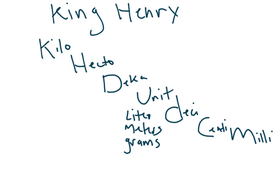 King Henry
Kilo
Hecto
Deka
Unit
Liter
Meters
grams
deci
Centi
Milli